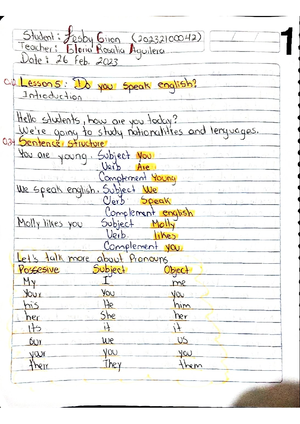 Student: Lesby Giron (20232100042)
Teacher: Elena Rosalia Aguilera
Date: 26 Feb. 2023
1
Lesson 5: Do you speak english?
Introduction
Hello students, how are you today?
We're going to study nationalities and lenguages.
Sentence structure
You are young. Subject You
Verb Are
Complement Young
We speak english. Subject We
Verb Speak
Complement english
Molly likes you Subject Molly
Verb likes
Complement you
Let's talk more about Pronouns
Possesive Subject Object
My I me
Your You you
his He him
her She her
Its it it
our we us
your you you
their They them